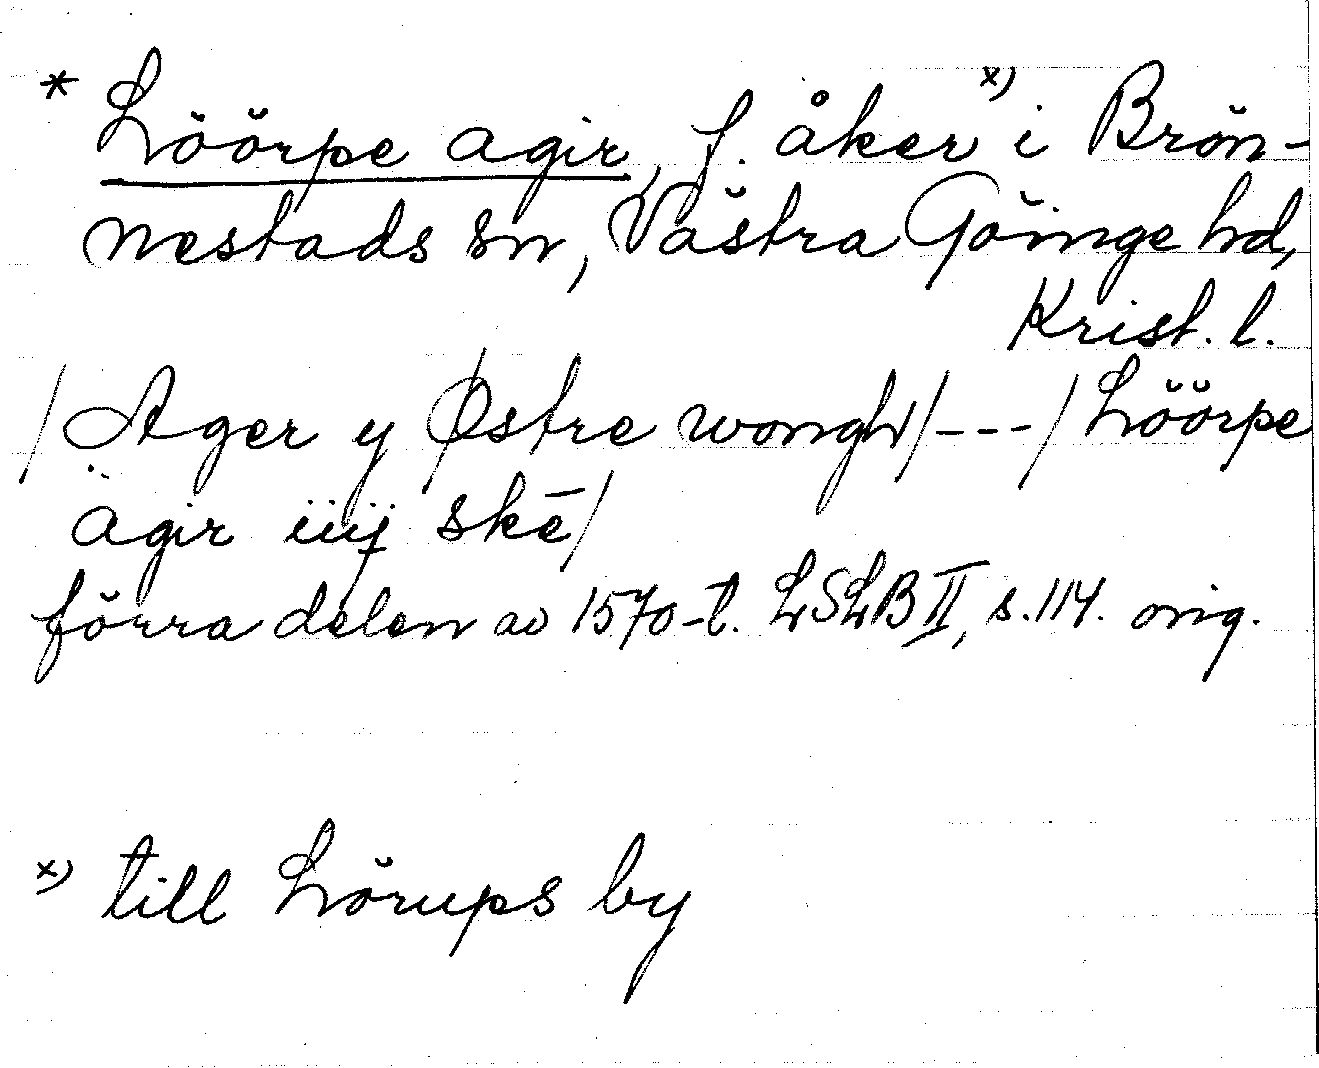 * Löörpe agir, f. åker x) i Brön-
nestads sn, Västra Göinge hd,
Krist. l.
/Ager y Østre wongh/---/Löörpe
agir iiij skē/
förra delen av 1570-t. LSLB II, s. 114. orig.
x) till Lörups by